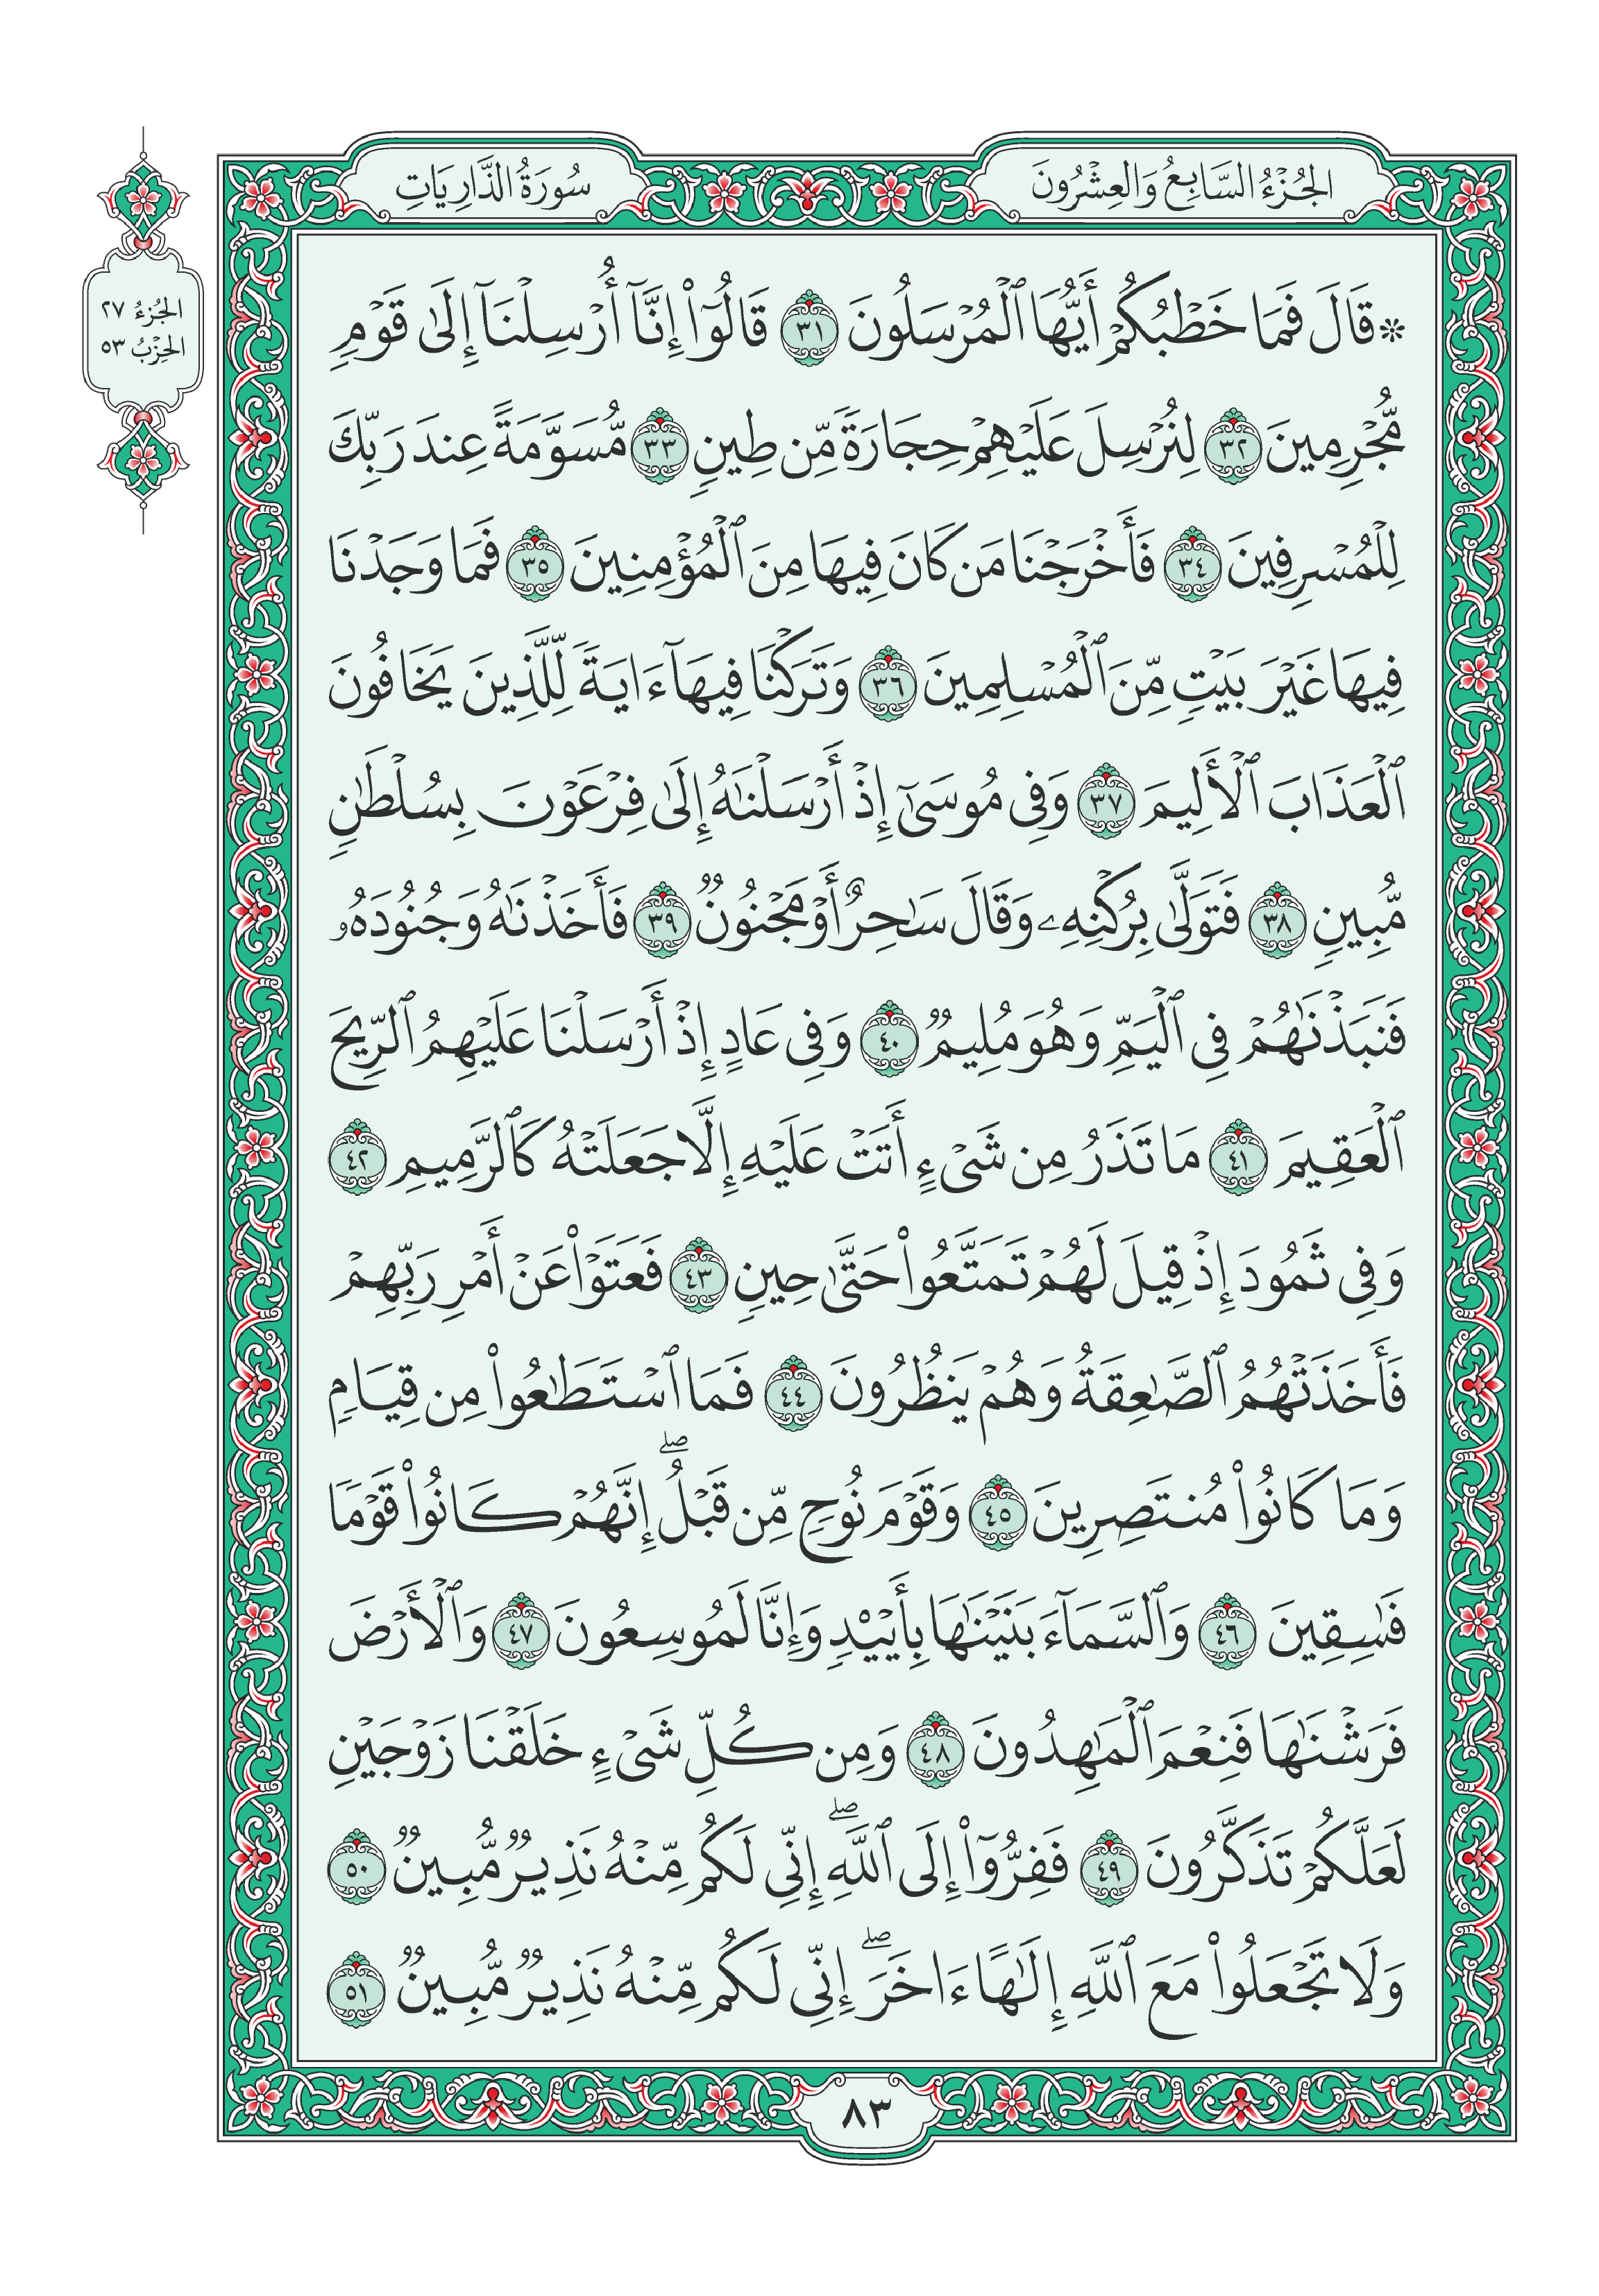 الجُزْءُ السَّابِعُ وَالعِشْرُونَ
سُورَةُ الذَّارِيَاتِ
الجُزءُ ٢٧
الحِزْبُ ٥٣
۞ قَالَ فَمَا خَطْبُكُمْ أَيُّهَا ٱلْمُرْسَلُونَ ٣١ قَالُوٓا۟ إِنَّآ أُرْسِلْنَآ إِلَىٰ قَوْمٍ
مُّجْرِمِينَ ٣٢ لِنُرْسِلَ عَلَيْهِمْ حِجَارَةً مِّن طِينٍ ٣٣ مُّسَوَّمَةً عِندَ رَبِّكَ
لِلْمُسْرِفِينَ ٣٤ فَأَخْرَجْنَا مَن كَانَ فِيهَا مِنَ ٱلْمُؤْمِنِينَ ٣٥ فَمَا وَجَدْنَا
فِيهَا غَيْرَ بَيْتٍ مِّنَ ٱلْمُسْلِمِينَ ٣٦ وَتَرَكْنَا فِيهَآ ءَايَةً لِّلَّذِينَ يَخَافُونَ
ٱلْعَذَابَ ٱلْأَلِيمَ ٣٧ وَفِى مُوسَىٰٓ إِذْ أَرْسَلْنَٰهُ إِلَىٰ فِرْعَوْنَ بِسُلْطَٰنٍ
مُّبِينٍ ٣٨ فَتَوَلَّىٰ بِرُكْنِهِۦ وَقَالَ سَٰحِرٌ أَوْ مَجْنُونٌ ٣٩ فَأَخَذْنَٰهُ وَجُنُودَهُۥ
فَنَبَذْنَٰهُمْ فِى ٱلْيَمِّ وَهُوَ مُلِيمٌ ٤٠ وَفِى عَادٍ إِذْ أَرْسَلْنَا عَلَيْهِمُ ٱلرِّيحَ
ٱلْعَقِيمَ ٤١ مَا تَذَرُ مِن شَىْءٍ أَتَتْ عَلَيْهِ إِلَّا جَعَلَتْهُ كَٱلرَّمِيمِ ٤٢
وَفِى ثَمُودَ إِذْ قِيلَ لَهُمْ تَمَتَّعُوا۟ حَتَّىٰ حِينٍ ٤٣ فَعَتَوْا۟ عَنْ أَمْرِ رَبِّهِمْ
فَأَخَذَتْهُمُ ٱلصَّٰعِقَةُ وَهُمْ يَنظُرُونَ ٤٤ فَمَا ٱسْتَطَٰعُوا۟ مِن قِيَامٍ
وَمَا كَانُوا۟ مُنتَصِرِينَ ٤٥ وَقَوْمَ نُوحٍ مِّن قَبْلُ ۖ إِنَّهُمْ كَانُوا۟ قَوْمًا
فَٰسِقِينَ ٤٦ وَٱلسَّمَآءَ بَنَيْنَٰهَا بِأَيْي۟دٍ وَإِنَّا لَمُوسِعُونَ ٤٧ وَٱلْأَرْضَ
فَرَشْنَٰهَا فَنِعْمَ ٱلْمَٰهِدُونَ ٤٨ وَمِن كُلِّ شَىْءٍ خَلَقْنَا زَوْجَيْنِ
لَعَلَّكُمْ تَذَكَّرُونَ ٤٩ فَفِرُّوٓا۟ إِلَى ٱللَّهِ ۖ إِنِّى لَكُم مِّنْهُ نَذِيرٌ مُّبِينٌ ٥٠
وَلَا تَجْعَلُوا۟ مَعَ ٱللَّهِ إِلَٰهًا ءَاخَرَ ۖ إِنِّى لَكُم مِّنْهُ نَذِيرٌ مُّبِينٌ ٥١
٨٣